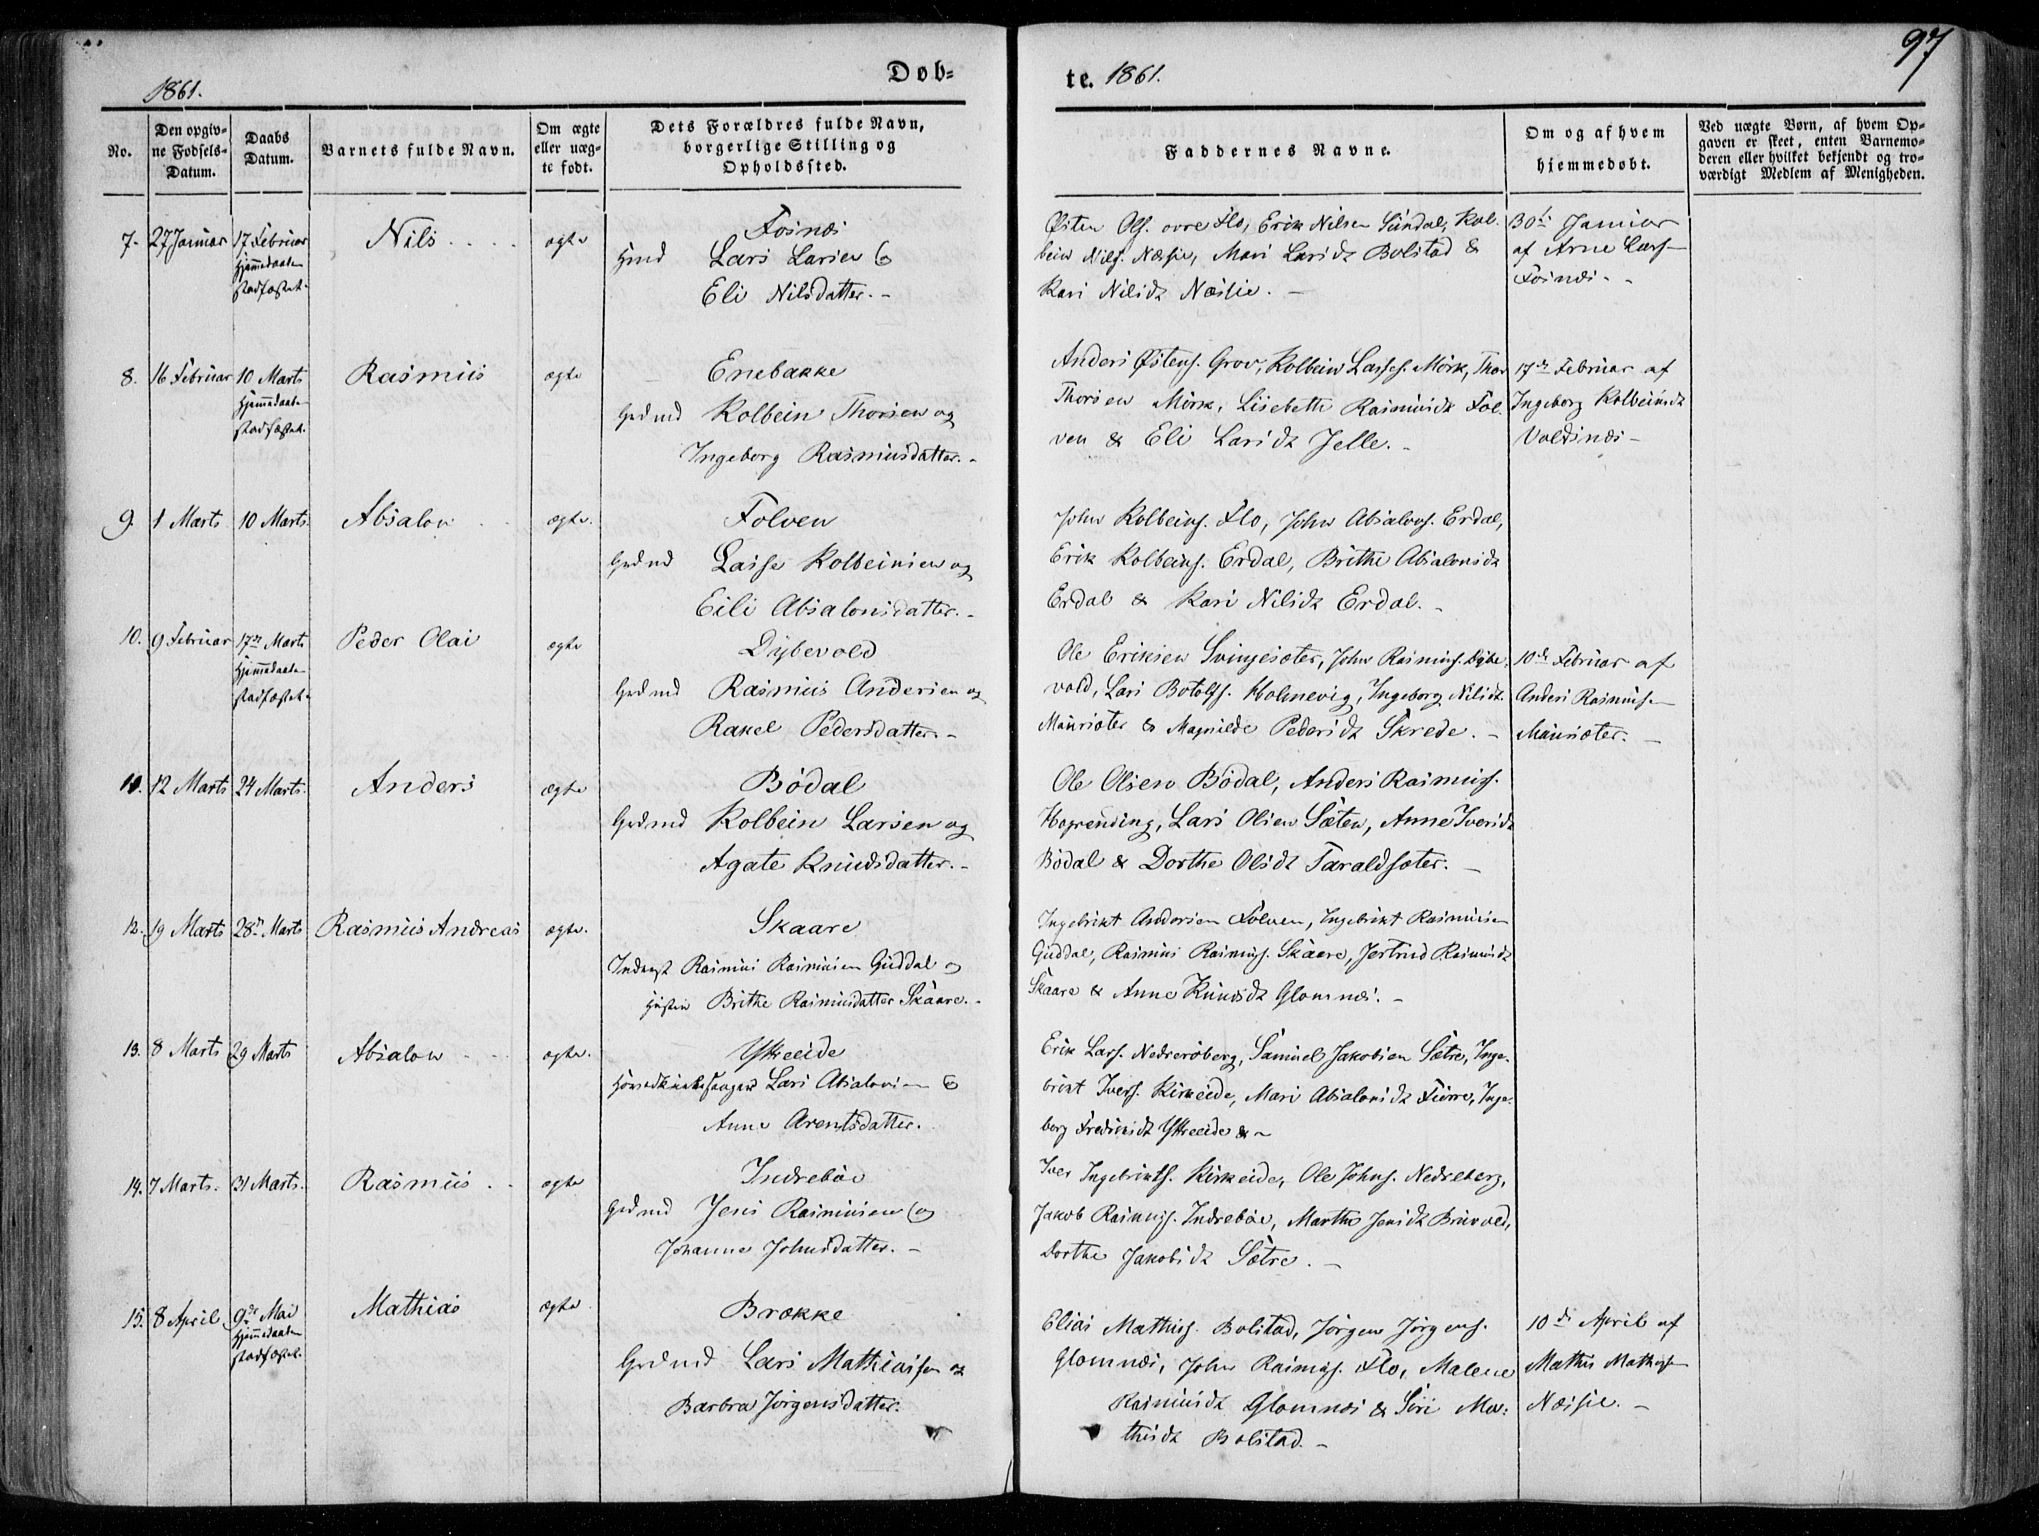 97
1861.
Døb=
te. 1861.
No.
Den opgiv=
ne Fødsels=
Datum.
Daabs
Datum.
Barnets fulde Navn.
Om ægte
eller uæg=
te født.
Dets Forældres fulde Navn,
borgerlige Stilling og
Opholdssted.
Faddernes Navne.
Om og af hvem
hjemmedøbt.
Ved uægte Børn, af hvem Op=
gaven er skeet, enten Barnemo=
deren eller hvilket bekjendt og tro=
værdigt Medlem af Menigheden.
7. 27 Januar 17 Februar Nils ægte Fosnæs
Hjemmedaaben
stadfæstet.
Hmd Lars Larsen &
Eli Nilsdatter. -
Østen Ols. øvre Flo, Erik Nilsen Sundal, Kol-
bein Nils. Næsje, Mari Larsdt Bolstad &
Kari Nilsdt Næsje. -
30te Januar
af Arne Lars-
Fosnæs. -
8. 16 Februar 10 Marts Rasmus ægte Enebakke
Hjemmedaaben
stadfæstet.
Grd md Kolbein Thorsen og
Ingeborg Rasmusdatter. -
Anders Østens. Grov, Kolbein Lasses. Mørk, Thor
Thorsen Mørk, Lisebeth Rasmusdt Fol-
ven & Eli Larsdt Jelle. -
17de Februar af
Ingeborg Kolbeinsdt
Voldsnæs -
9. 1 Marts 10 Marts. Absalon ægte. Folven
Grd md Lasse Kolbeinsen og
Eili Absalonsdatter. -
John Kolbeins. Flo, John Absalons. Erdal,
Erik Kolbeins. Erdal, Brithe Absalonsdt
Erdal & Kari Nilsdt Erdal. -
10. 9 Februar 17de Marts Peder Olai ægte Dybevold
Hjemmedaaben
stadfæstet.
Grd md Rasmus Andersen og
Rakel Pedersdatter. -
Ole Eriksen Svingesæter, John Rasmus. Dybe-
vold, Lars Botolfs. Holmevig, Ingeborg Nilsdt.
Maursæter & Magnilde Pedersdt Skrede. -
10de Februar af
Anders Rasmus-
Maursæter. -
11. 12 Marts 24 Marts. Anders ægte Bødal
Grd md Kolbein Larsen og
Agate Knudsdatter. -
Ole Olsen Bødal, Anders Rasmus.
Hogrending, Lars Olsen Sæten, Anne Iversdt
Bødal & Dorthe Olsdt Taraldsæter. -
12. 19 Marts 28de Marts Rasmus Andreas ægte. Skaare
Inderst Rasmus Rasmusen Guddal og
Hustru Brithe Rasmusdatter Skaare. -
Ingebrikt Andersen Folven, Ingebrikt Rasmusen
Guddal, Rasmus Rasmus. Skaare, Jertrud Rasmusdt
Skaare & Anne Knudsdt Glomnæs. -
13. 8 Marts 29 Marts Absalon ægte. Ytreeide
Lars Absalonsen &
Anne Arentsdatter.
Erik Lars. Nedreøberg, Samuel Jakobsen Sætre, Inge-
brikt Ivers. Kirkeide, Mari Absalonsdt Furre, Inge-
borg Fredriksdt Ytreeide & -
14. 7 Marts. 31 Marts. Rasmus ægte Indrebøe
Grd md Jens Rasmusen og
Johanne Johnsdatter. -
Iver Ingebrikts. Kirkeide, Ole Johns. Nedreberg,
Jakob Rasmus. Indrebøe, Marthe Jensdt Bruvold,
Dorthe Jakobsdt Sætre. -
15. 8 April 9de Mai Mathias ægte. Brække
Hjemmedaaben
stadfæstet.
Grd md Lars Mathiassen og
Barbra Jørgensdatter.
Elias Mathis. Bolstad, Jørgen Jørgens.
Glomnæs, John Rasmus. Flo, Malene
Rasmusdt Glomnæs & Siri Ma-
thisdt Bolstad. -
10de April af
Mathis Mathis-
Næsje. -